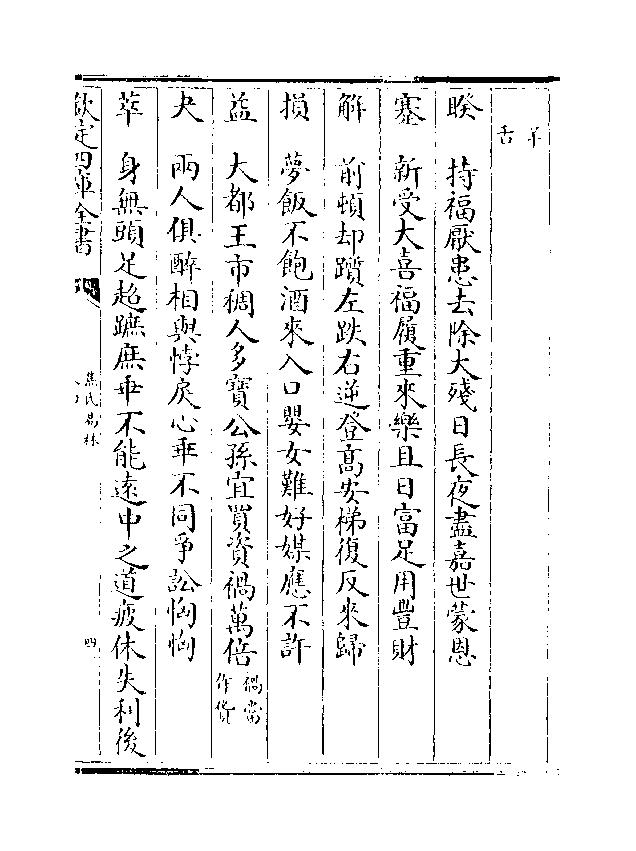 羊
舌
睽　持福厭患去除大殘日長夜盡嘉世蒙恩
蹇　新受大喜福履重來樂且日富足用豐財
解　前頓却躓左跌右逆登高安梯復反來歸
損　夢飯不飽酒來入口嬰女難好媒應不許
益　大都王市稠人多寶公孫宜買資禍萬倍禍當作貨
夬　兩人俱醉相與悖戾心乖不同爭訟恟恟
萃　身無頭足超蹠庶乖不能遠中之道疲休失利後
欽定四庫全書
焦氏易林
四